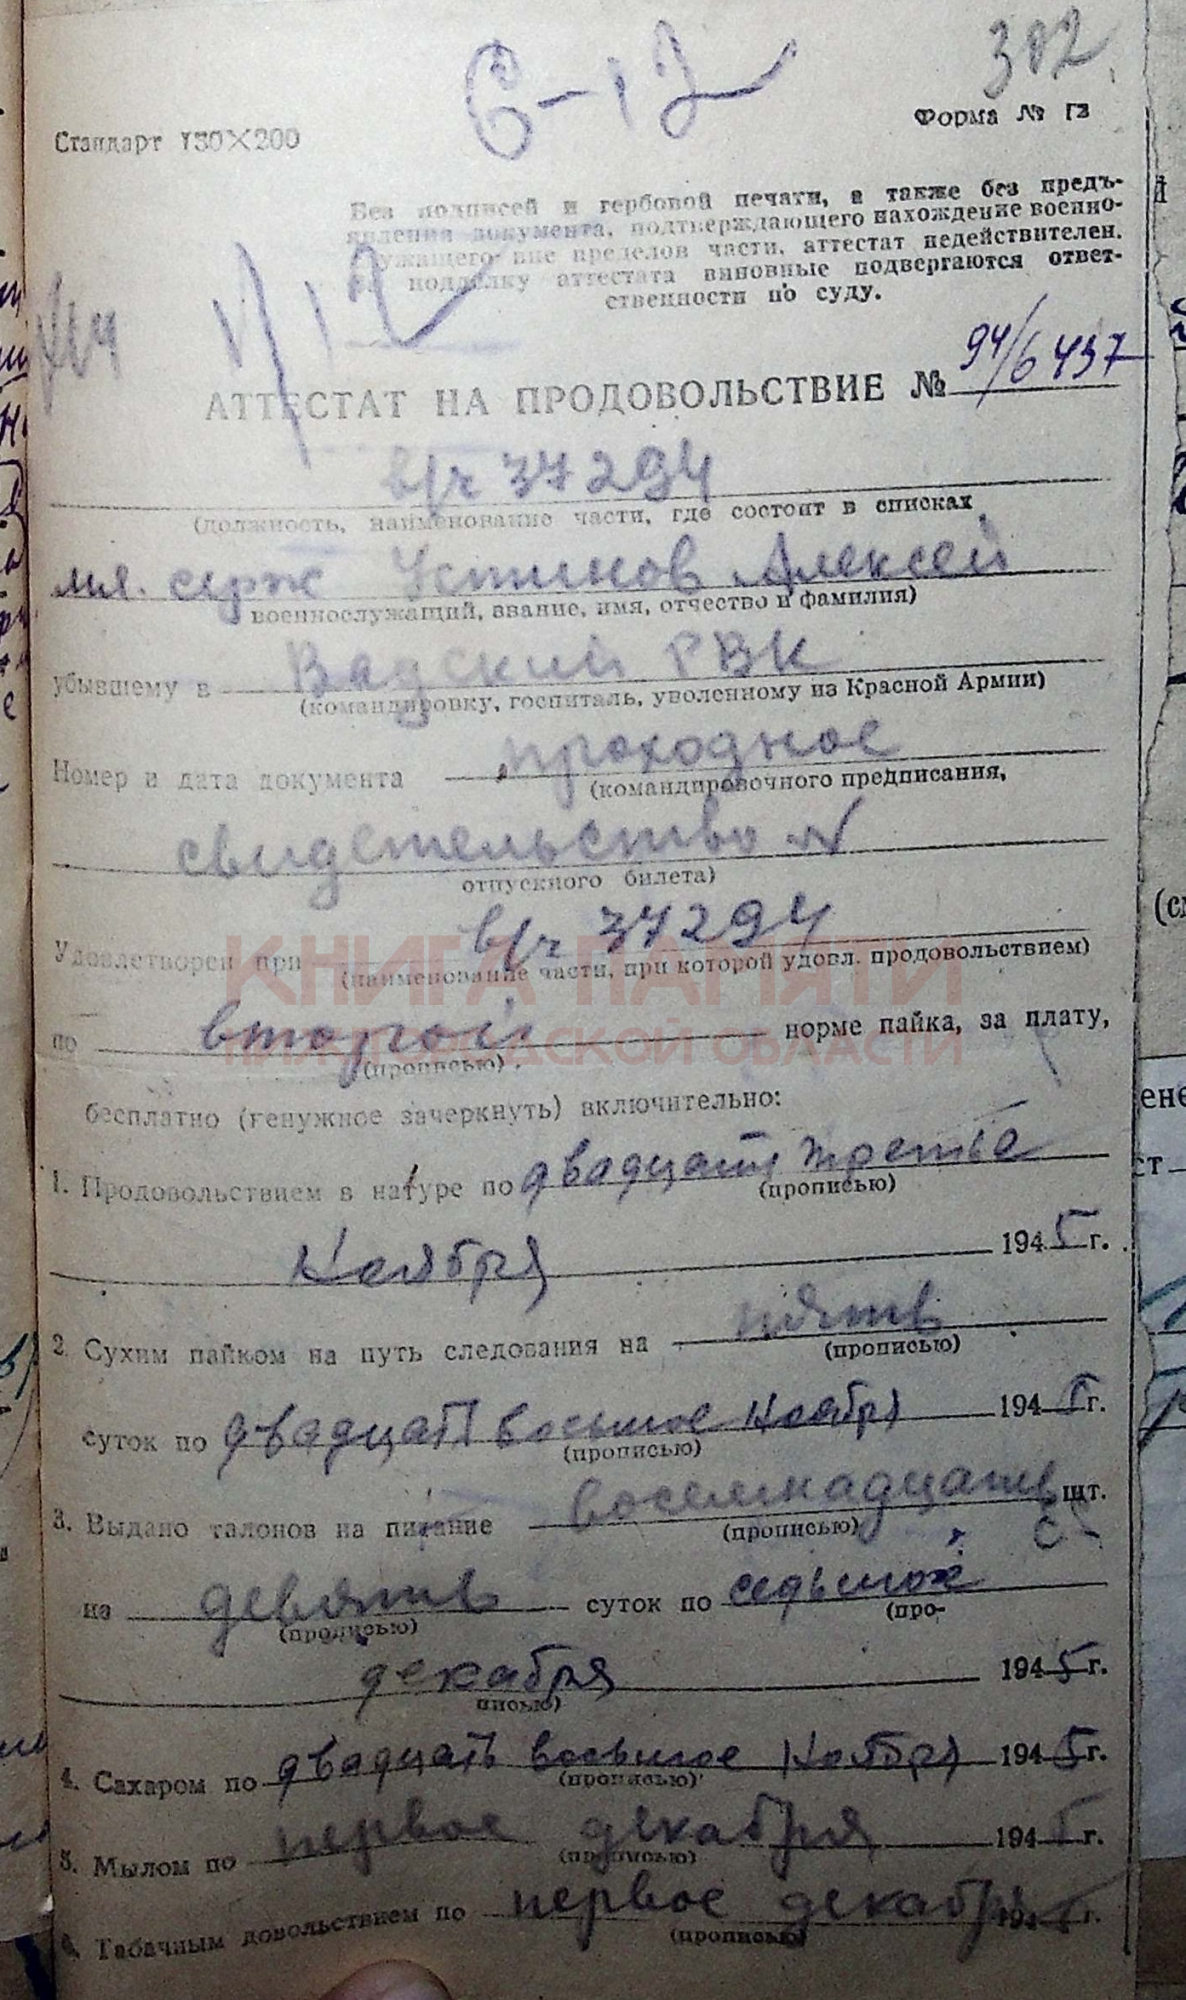 302
6-12
Стандарт 150×200
Форма № 13
Без подписей и гербовой печати, а также без предъ-
явления документа, подтверждающего нахождение военно-
служащего вне пределов части, аттестат недействителен.
За подделку аттестата виновные подвергаются ответ-
ственности по суду.
АТТЕСТАТ НА ПРОДОВОЛЬСТВИЕ № 94/6437
в/ч 37294
(должность, наименование части, где состоит в списках
мл. серж Устинов Алексей
военнослужащий, звание, имя, отчество и фамилия)
убывшему в Вадский РВК
(командировку, госпиталь, уволенному из Красной Армии)
Номер и дата документа проходное
(командировочного предписания,
свидетельство №
отпускного билета)
Удовлетворен при в/ч 37294
(наименование части, при которой удовл. продовольствием)
КНИГА ПАМЯТИ
НИЖЕГОРОДСКОЙ ОБЛАСТИ
по второй норме пайка, за плату,
(прописью)
бесплатно (ненужное зачеркнуть) включительно:
1. Продовольствием в натуре по двадцать третье
(прописью)
Ноября 1945 г.
2. Сухим пайком на путь следования на пять
(прописью)
суток по двадцать восьмое Ноября 1945 г.
(прописью)
3. Выдано талонов на питание восемнадцать шт.
(прописью)
на девять суток по седьмое
(прописью) (про-
декабря 1945 г.
писью)
4. Сахаром по двадцать восьмое Ноября 1945 г.
(прописью)
5. Мылом по первое декабря 1945 г.
(прописью)
6. Табачным довольствием по первое декабря 1945 г.
(прописью)